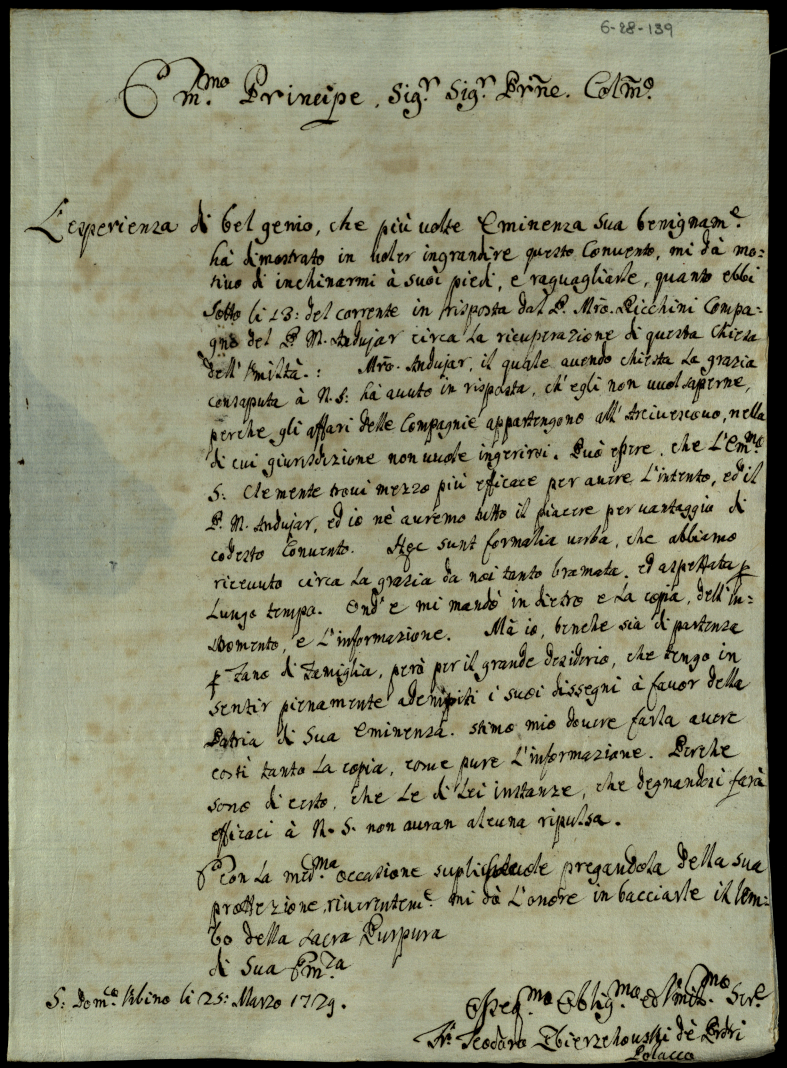 6-28-139
Em.mo Principe, Sig.r Sig.r Prñe. Colm̃o.
L'esperienza di bel genio, che più volte Eminenza sua benignam.e
hà dimostrato in voler ingrandire questo Convento, mi dà mo=
tivo di inchinarmi à suoi piedi, e raguagliarle, quanto ebbi
sotto li 13: del corrente in risposta dal P. Mrõ. Picchini Compa=
gno del P. M. Andujar circa la ricuperazione di questa Chiesa
dell'Umiltà.: Mrõ. Andujar, il quale avendo chiesta la grazia
consaputa à N. S: hà avuto in risposta, ch'egli non vuol saperne,
perche gli affari delle Compagnie appartengono all'Arcivescovo, nella
di cui giurisdizione non vuole ingerirsi. Può essere, che l'Em.mo
S: Clemente trovi mezzo più efficace per avere l'intento, ed il
P. M. Andujar, ed io nè avremo tutto il piacere per vantaggio di
codesto Convento. Hęc sunt formalia verba, che abbiamo
ricevuto circa la grazia da noi tanto bramata, ed aspettata p
lungo tempo. Ond'e mi mandò in dietro e la copia, dell'in=
Mà io, benche sia di partenza
e l'informazione.
p Fano di famiglia, però per il grande desiderio, che tengo in
sentir pienamente adempiti i suoi dissegni à favor della
Patria di Sua Eminenza. stimo mio dovere farla avere
costì tanto la copia, come pure l'informazione. Perche
sono di certo, che le di Lei instanze, che degnandosi farà
efficaci à N. S. non auran alcuna ripulsa.
Con la med.ma occasione pregandola della sua
prottezione, riverentem.e mi dò l'onore in bacciarle il lem=
bo della sacra Purpura
di Sua Em.za
S: Dom.o Urbino li 25: Marzo 1729.
Obblig.mo ed Umil.mo Ser.e
Fr. Teodoro de Prdri
Polacco